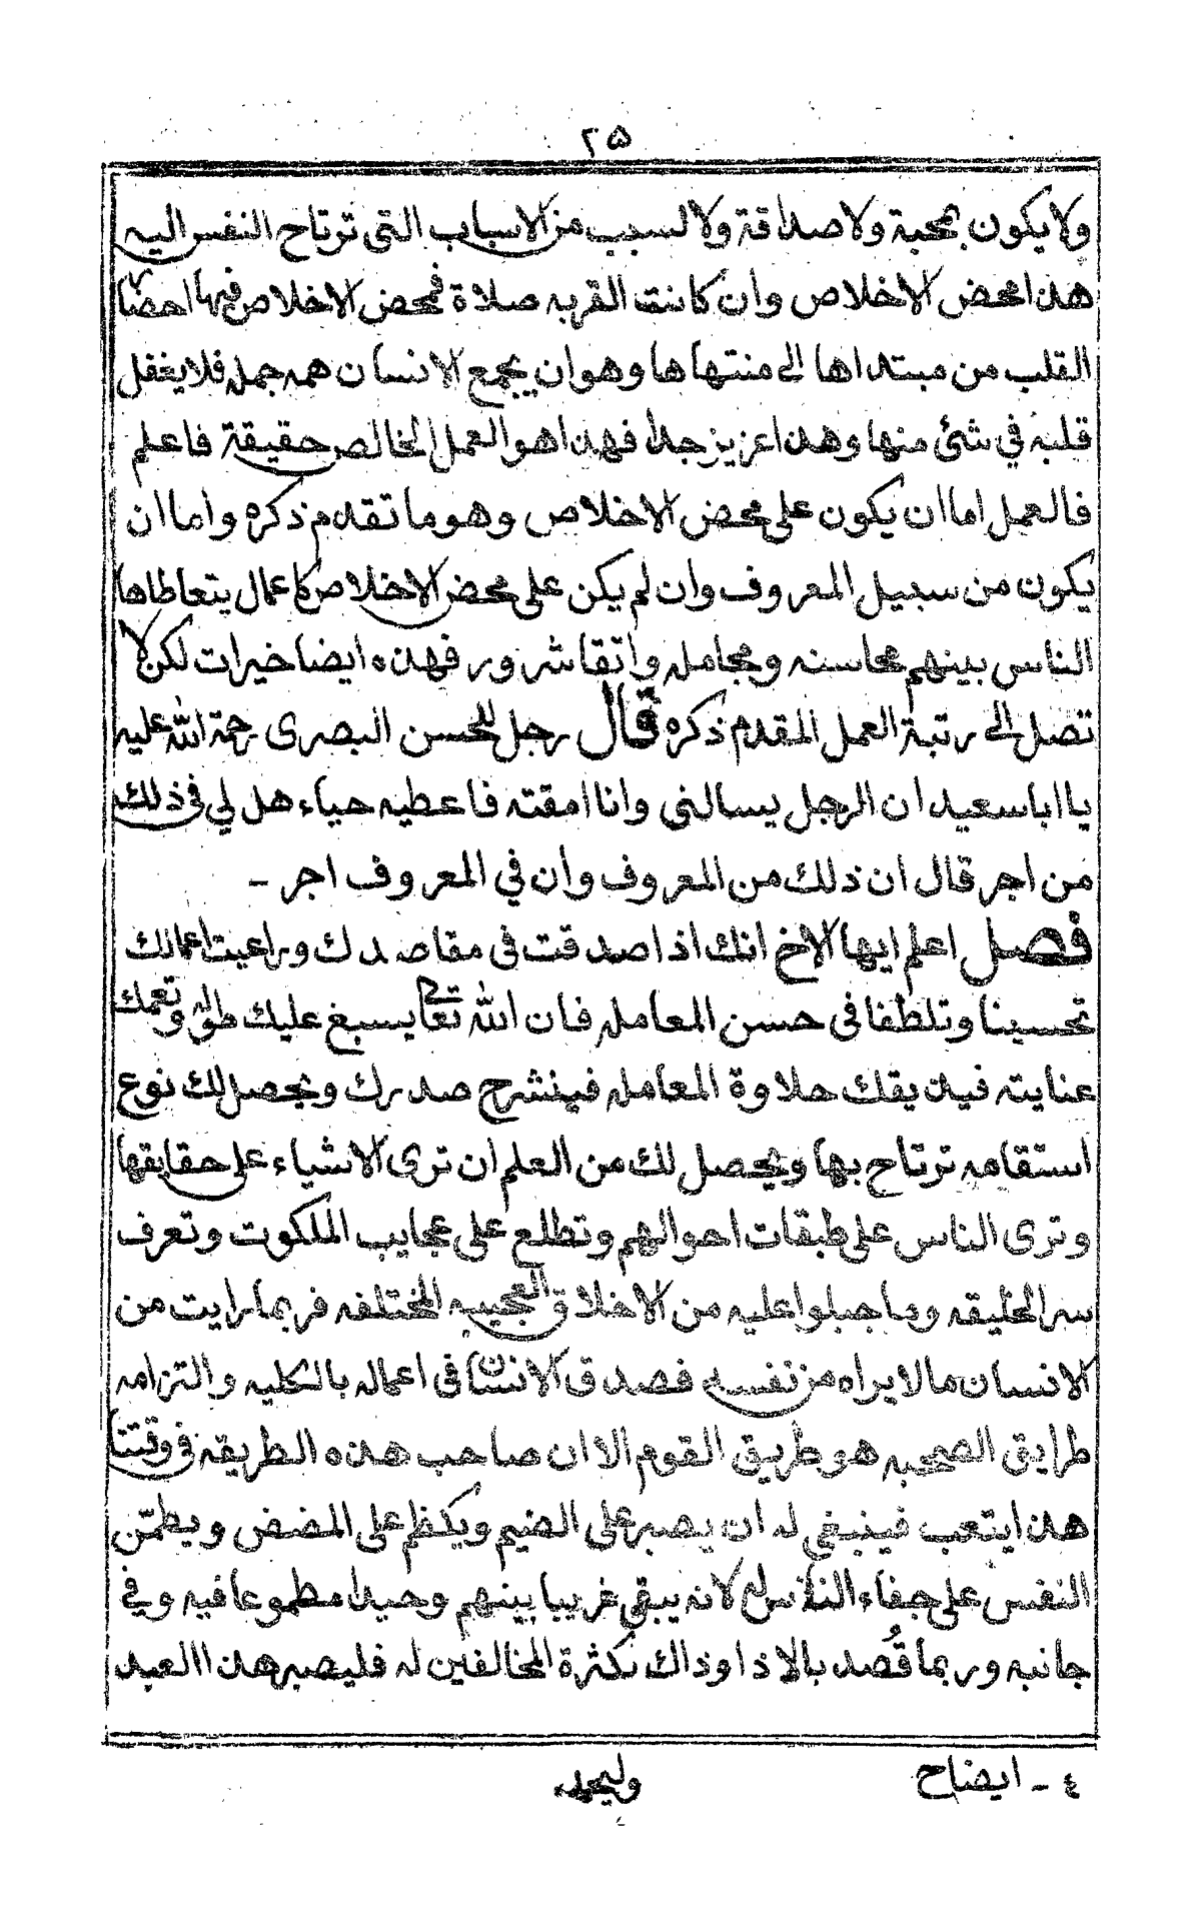 ٢٥
ولا يكون بمحبة ولا صداقة ولا لسبب من الاسباب التى ترتاح النفس اليه
هذا محض الاخلاص وان كانت القربه صلاة فمحض الاخلاص فيها احضار
القلب من مبتداها الى منتهاها وهو ان يجمع الانسان همه جمله فلا يغفل
قلبه في شئ منها وهذا عزيز جدا فهذا هو العمل الخالص حقيقة فاعلم
فالعمل اما ان يكون على محض الاخلاص وهو ما تقدم ذكره واما ان
يكون من سبيل المعروف وان لم يكن على محض الاخلاص كاعمال يتعاطاها
الناس بينهم محاسنه ومجامله واتقا شرور فهذه ايضا خيرات لكن لا
تصل الى رتبة العمل المقدم ذكره قال رجل للحسن البصرى رحمة الله عليه
يا ابا سعيد ان الرجل يسالنى وانا امقته فاعطيه حياء هل لي في ذلك
من اجر قال ان ذلك من المعروف وان في المعروف اجر -
فصل اعلم ايها الاخ انك اذا صدقت فى مقاصدك وراعيت اعمالك
تحسينا وتلطفا فى حسن المعامله فان الله تعالى يسبغ عليك طوله وتعمك
عنايته فيذيقك حلاوة المعامله فينشرح صدرك ويحصل لك نوع
استقامه ترتاح بها ويحصل لك من العلم ان ترى الاشياء على حقايقها
وترى الناس على طبقات احوالهم وتطلع على عجايب الملكوت وتعرف
سر الخليقه وما جبلوا عليه من الاخلاق العجيبه المختلفه فربما رايت من
الانسان مالا يراه من نفسه فصدق الانسان فى اعماله بالكليه والتزامه
طرايق الصحبه هو طريق القوم الا ان صاحب هذه الطريقه فى وقتنا
هذا يتعب فينبغي له ان يصبر على الضيم ويكظم على المضض ويطمّن
النفس على جفاء الناس له لانه يبقى غريبا بينهم وحيدا مطموعا فيه وفي
جانبه وربما قُصد بالاذا وذاك لكثرة المخالفين له فليصبر هذا العبد
٤ - ايضاح
وليحمد